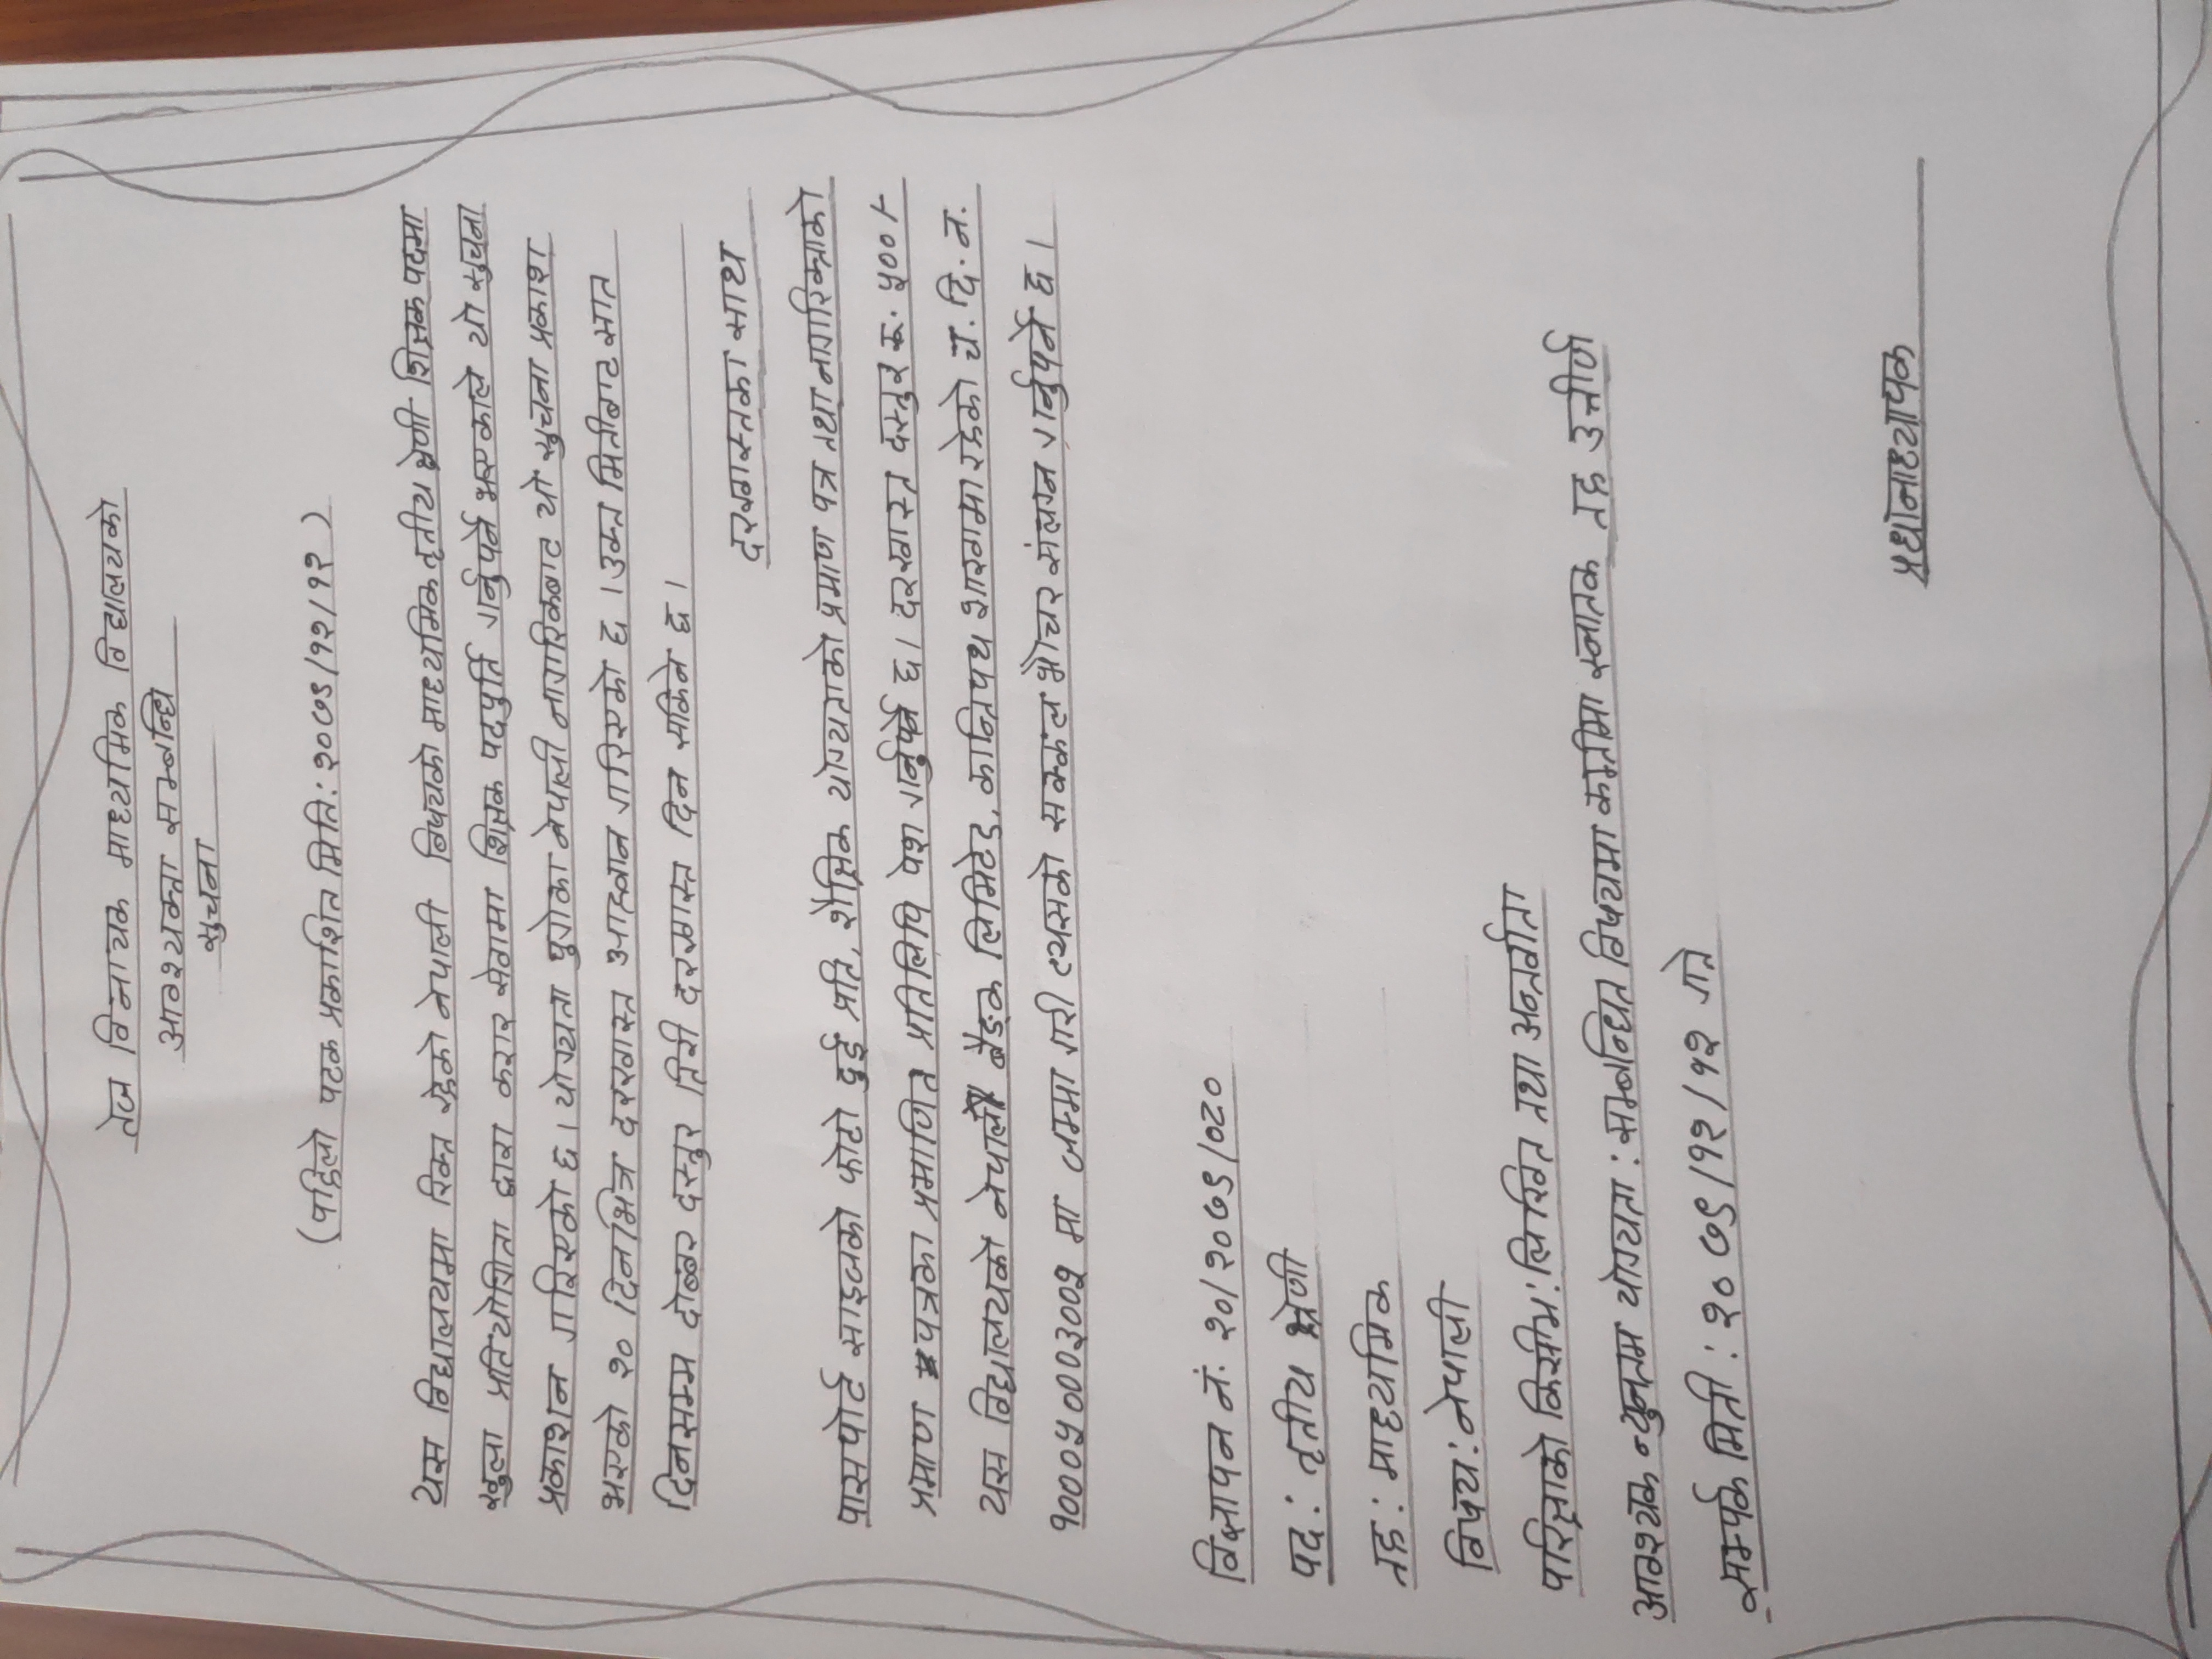 तेज विनायक माध्यमिक विद्यालयको
आवश्यक्ता सम्बन्धि
सुचना
(पहिलो पटक प्रकाशित मिति: २०७९/१२/१२)
यस विद्यालयमा रिक्त रहेको नेपाली बिषयको माध्यमिक तृतीय श्रेणी शिक्षक पदमा
खुला प्रतियोगिता द्वारा करार सेवामा शिक्षक पदपुर्ति गर्नुपर्ने भएकाले यो सुचना
प्रकाशन गरिएको छ। योग्यता पुगेका नेपाली नागरिकबाट यो सुचना प्रकाश
भएको २० दिनभित्र दरखास्त आह्वान गरिएको छ । उक्त मितीबाट सात
दिनसम्म दोब्बर दस्तुर तिरी दरखास्त दिन सकिने छ।
दरखास्तका साथ
पासपोर्ट साइजको फोटो दुई प्रति, शैक्षिक योग्यताको प्रमाण पत्र तथा नागरिक्ताको
प्रमाण पत्रका प्रमाणित प्रतिलिपि पेश गर्नुपर्ने छ। दरखास्त दस्तुर रू. ५००/-
यस विद्यालयको नेपाल बैङ्क लिमिटेड, कान्तिपथ शाखामा रहेको च. दि. न.
१०००५०००३००२ मा जम्मा गरी त्यसको सक्कल भौचर संलग्न गर्नुपर्ने छ।
विज्ञापन नं. २०/२०७९/०८०
पद: तृतीय श्रेणी
तह: माध्यमिक
विषय: नेपाली
परिक्षाको किसीम: लिखित तथा अन्तर्वाता
आवश्यक न्युनतम योग्यता: सम्बन्धित विषयमा कम्तीमा स्नातक तह उत्तीर्ण
सम्पर्क मिती: २०७९/१२/१२ गते
प्रधानाध्यापक